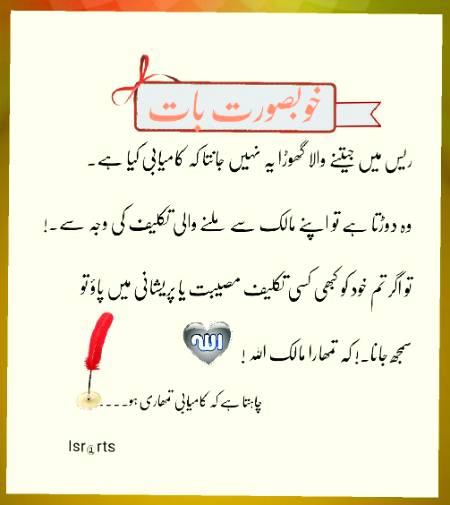 خوبصورت بات
ریس میں جیتنے والا گھوڑا یہ نہیں جانتا کہ کامیابی کیا ہے۔
وہ دوڑتا ہے تو اپنے مالک سے ملنے والی تکلیف کی وجہ سے۔!
تو اگر تم خود کو کبھی کسی تکلیف مصیبت یا پریشانی میں پاؤ تو
سمجھ جانا۔! کہ تمھارا مالک اللہ ! الله
چاہتا ہے کہ کامیابی تمھاری ہو۔۔۔۔
Isr@rts